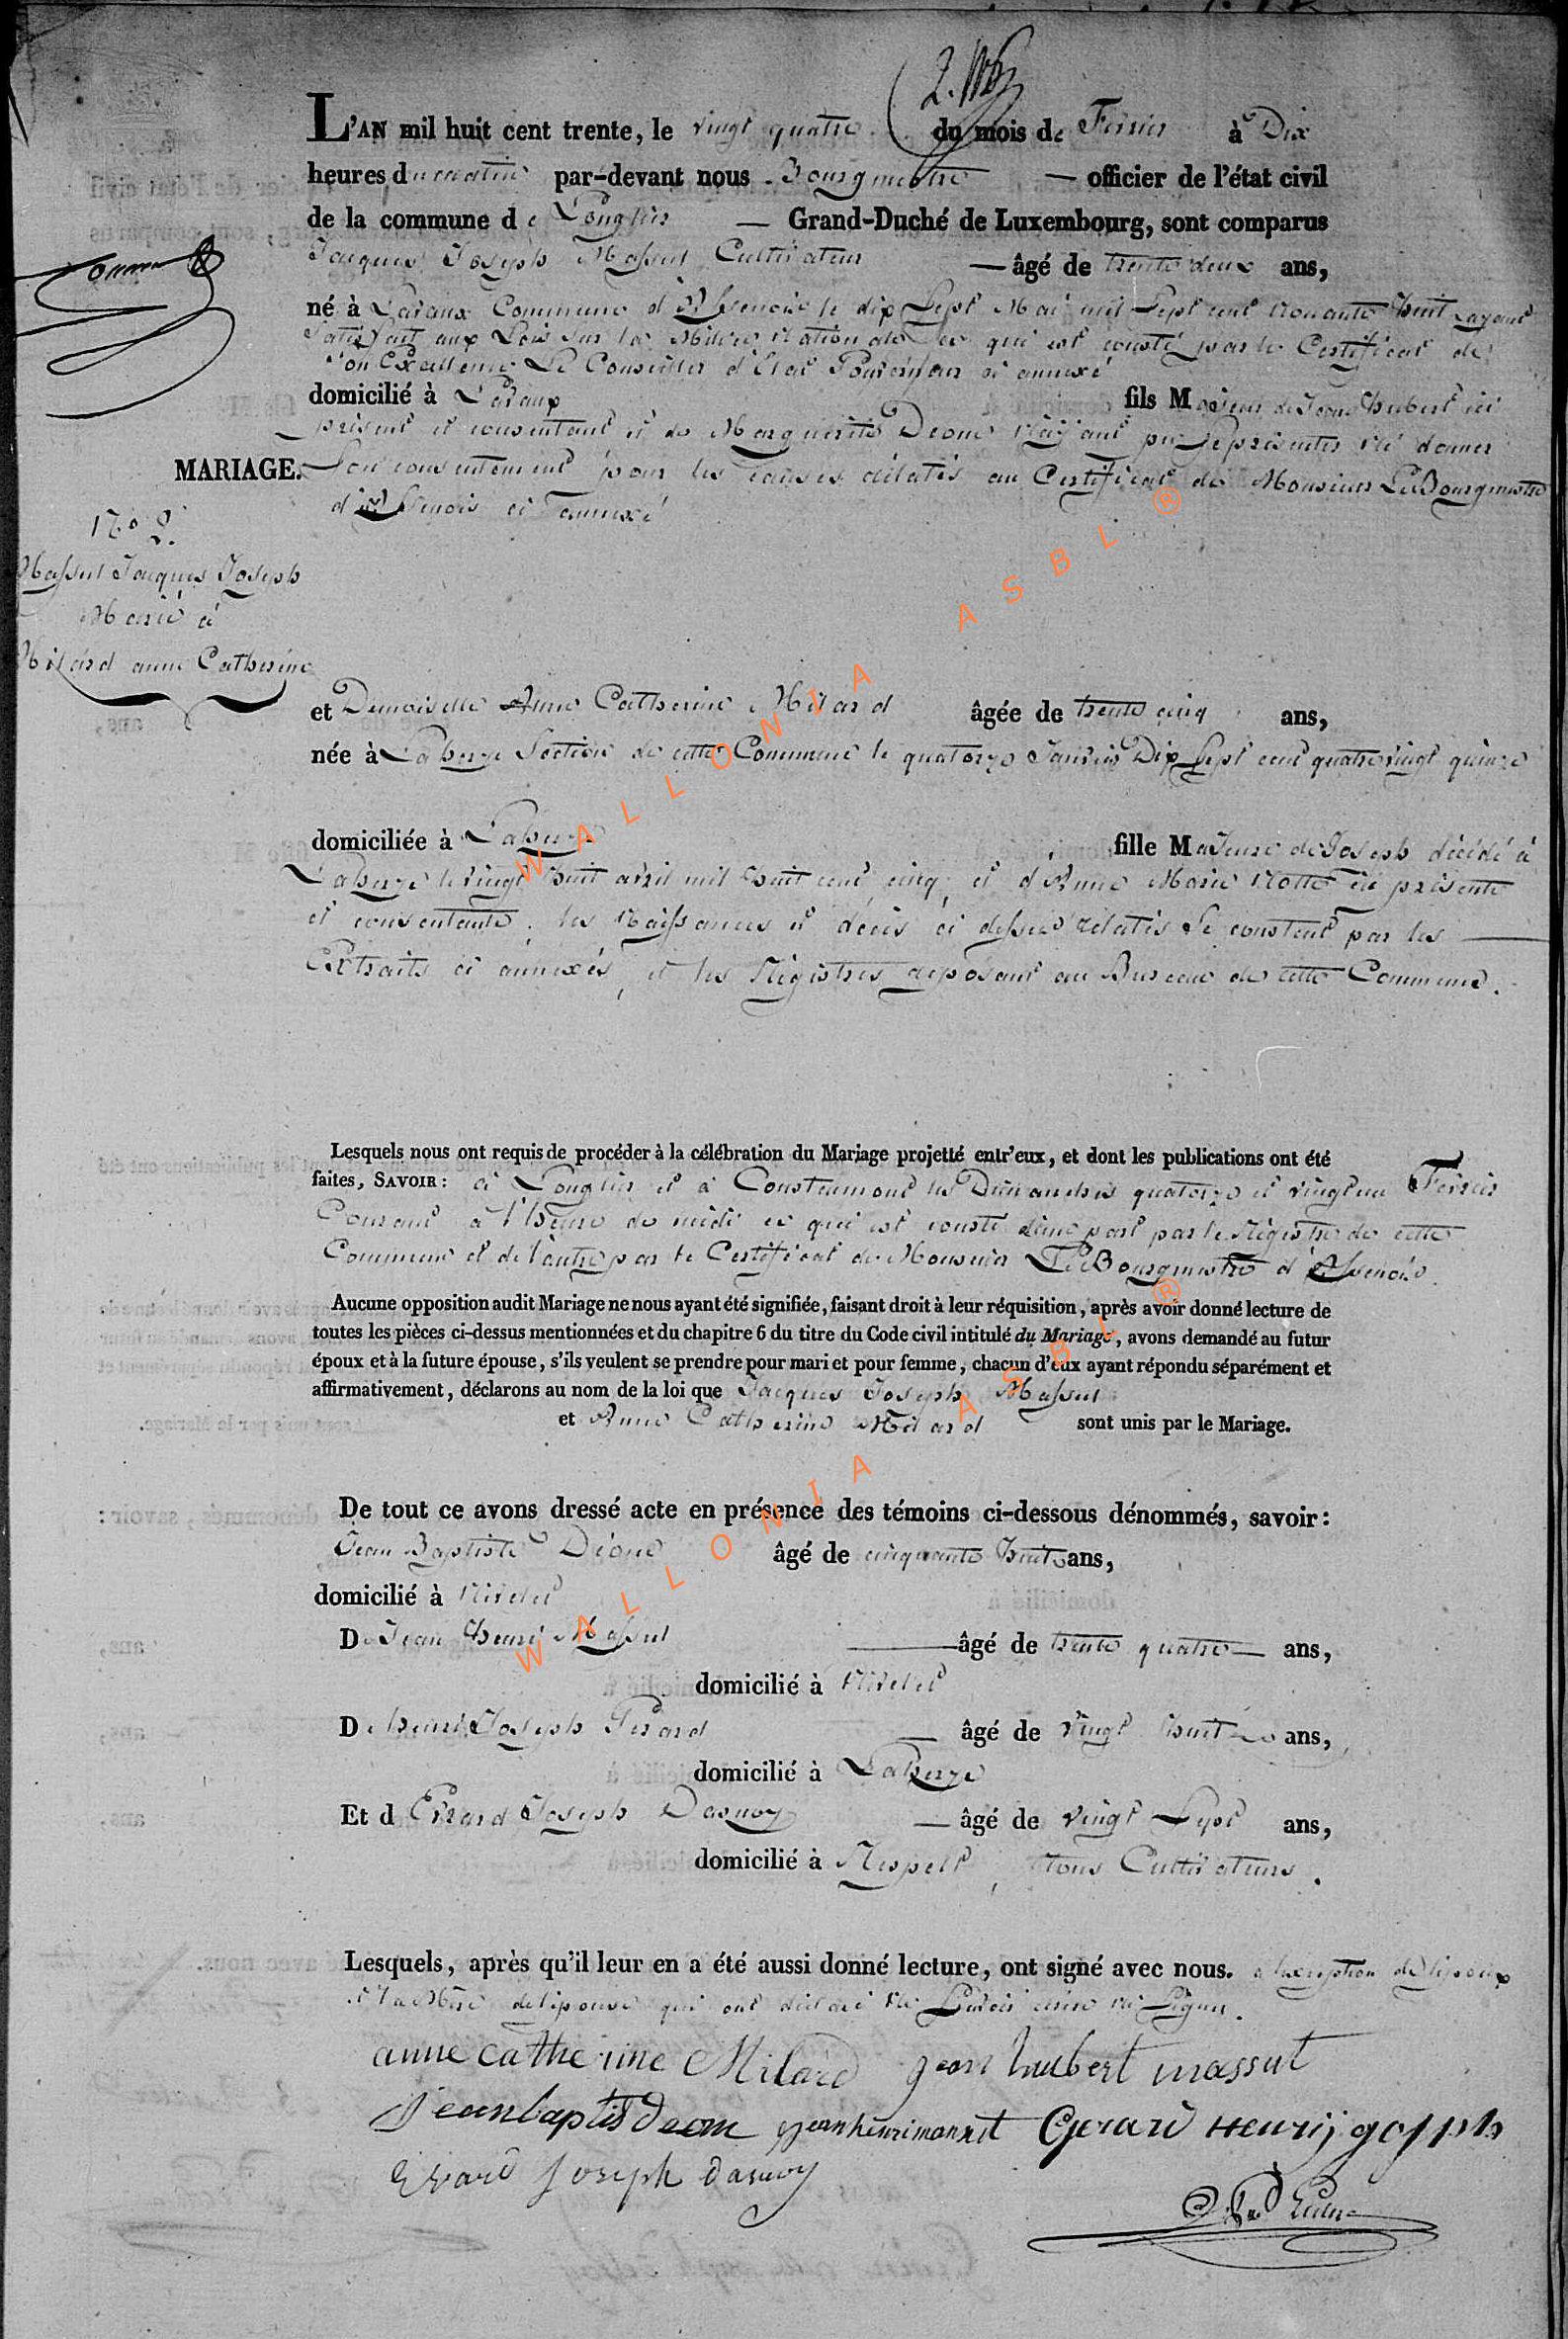 L'AN mil huit cent trente, le vingt quatre du mois de Fevrier à Dix
heures du matin par-devant nous Bourgmestre — officier de l'état civil
de la commune de Longlier — Grand-Duché de Luxembourg, sont comparus
Jacques Joseph Massut Cultivateur — âgé de trente deux ans,
né à Lavaux Commune d'Assenois le dix Sept Mai mil Sept cent nonante huit ayant
Satisfait aux Lois Sur la Milice Nationale Ce qui est consté par le Certificat de
Son Excellence Le Conseiller d'Etat Gouverneur ci annexé
domicilié à Lavaux fils Majeur de Jean Hubert ici
présent et consentant et de Marguerite Deom n'ayant pu se présenter ni donner
MARIAGE.
Son consentement pour les causes relatés au Certificat de Monsieur Le Bourgmestre
d'Assenois ci annexé
N° 2.
Massut Jacques Joseph
Marié à
Milard anne Catherine
et Demoiselle Anne Catherine Milard âgée de trente cinq ans,
née à Laherie Section de cette Commune le quatorze Janvier Dix Sept cent quatre vingt quinze
domiciliée à Laherie fille Majeure de Joseph décédé à
Laherie le vingt huit avril mil huit cent cinq et d'Anne Marie Notte ici présente
et consentante. les Naissances et décès ci dessus relatés Se constent par les
Extraits ci annexés, et les Régistres déposant au Bureau de cette Commune.
Lesquels nous ont requis de procéder à la célébration du Mariage projetté entr'eux, et dont les publications ont été
faites, SAVOIR: à Longlier et à Constumont les Dimanches quatorze et vingt un Fevrier
Courant à l'heure de midi ce qui est consté d'une part par le Régistre de cette
Commune et de l'autre par le Certificat de Monsieur Le Bourgmestre d'Assenois.
Aucune opposition audit Mariage ne nous ayant été signifiée, faisant droit à leur réquisition, après avoir donné lecture de
toutes les pièces ci-dessus mentionnées et du chapitre 6 du titre du Code civil intitulé du Mariage, avons demandé au futur
époux et à la future épouse, s'ils veulent se prendre pour mari et pour femme, chacun d'eux ayant répondu séparément et
affirmativement, déclarons au nom de la loi que Jacques Joseph Massut
et Anne Catherine Milard sont unis par le Mariage.
De tout ce avons dressé acte en présence des témoins ci-dessous dénommés, savoir:
Jean Baptiste Déom âgé de cinquante huit ans,
domicilié à Nivelet
De Jean Henri Massut âgé de trente quatre ans,
domicilié à Nivelet
De henri Joseph Gerard — âgé de vingt huit ans,
domicilié à Laherie
Et d Evrard Joseph Dasnoy — âgé de vingt Sept ans,
domicilié à Respelt, tous Cultivateurs.
Lesquels, après qu'il leur en a été aussi donné lecture, ont signé avec nous. a l'exception de l'epoux
et la Mère de l'épouse qui ont déclaré ne Savoir écrire ni Signer.
anne catherine Milard jean hubert massut
jean baptist deom jean henri massut Gerard Henrij joseph
Evard Joseph dasnoy
WALLONIA ASBL ®
WALLONIA ASBL ®